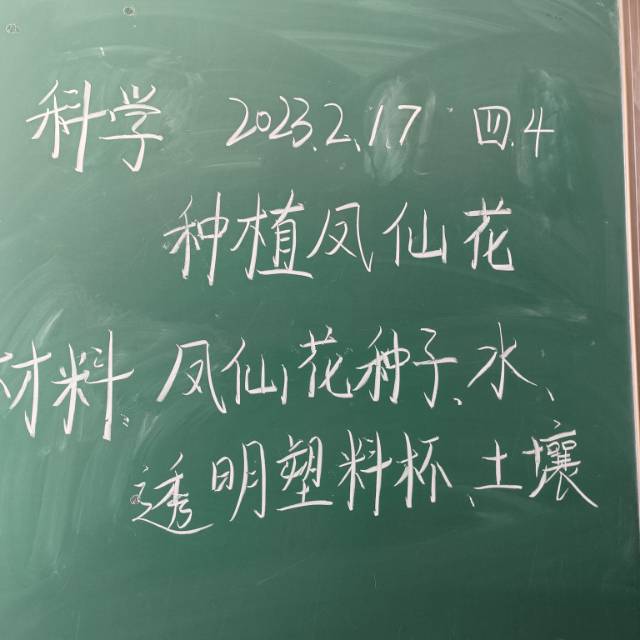 科学 2023.2.17 四.4
种植凤仙花
材料:凤仙花种子、水、
透明塑料杯、土壤